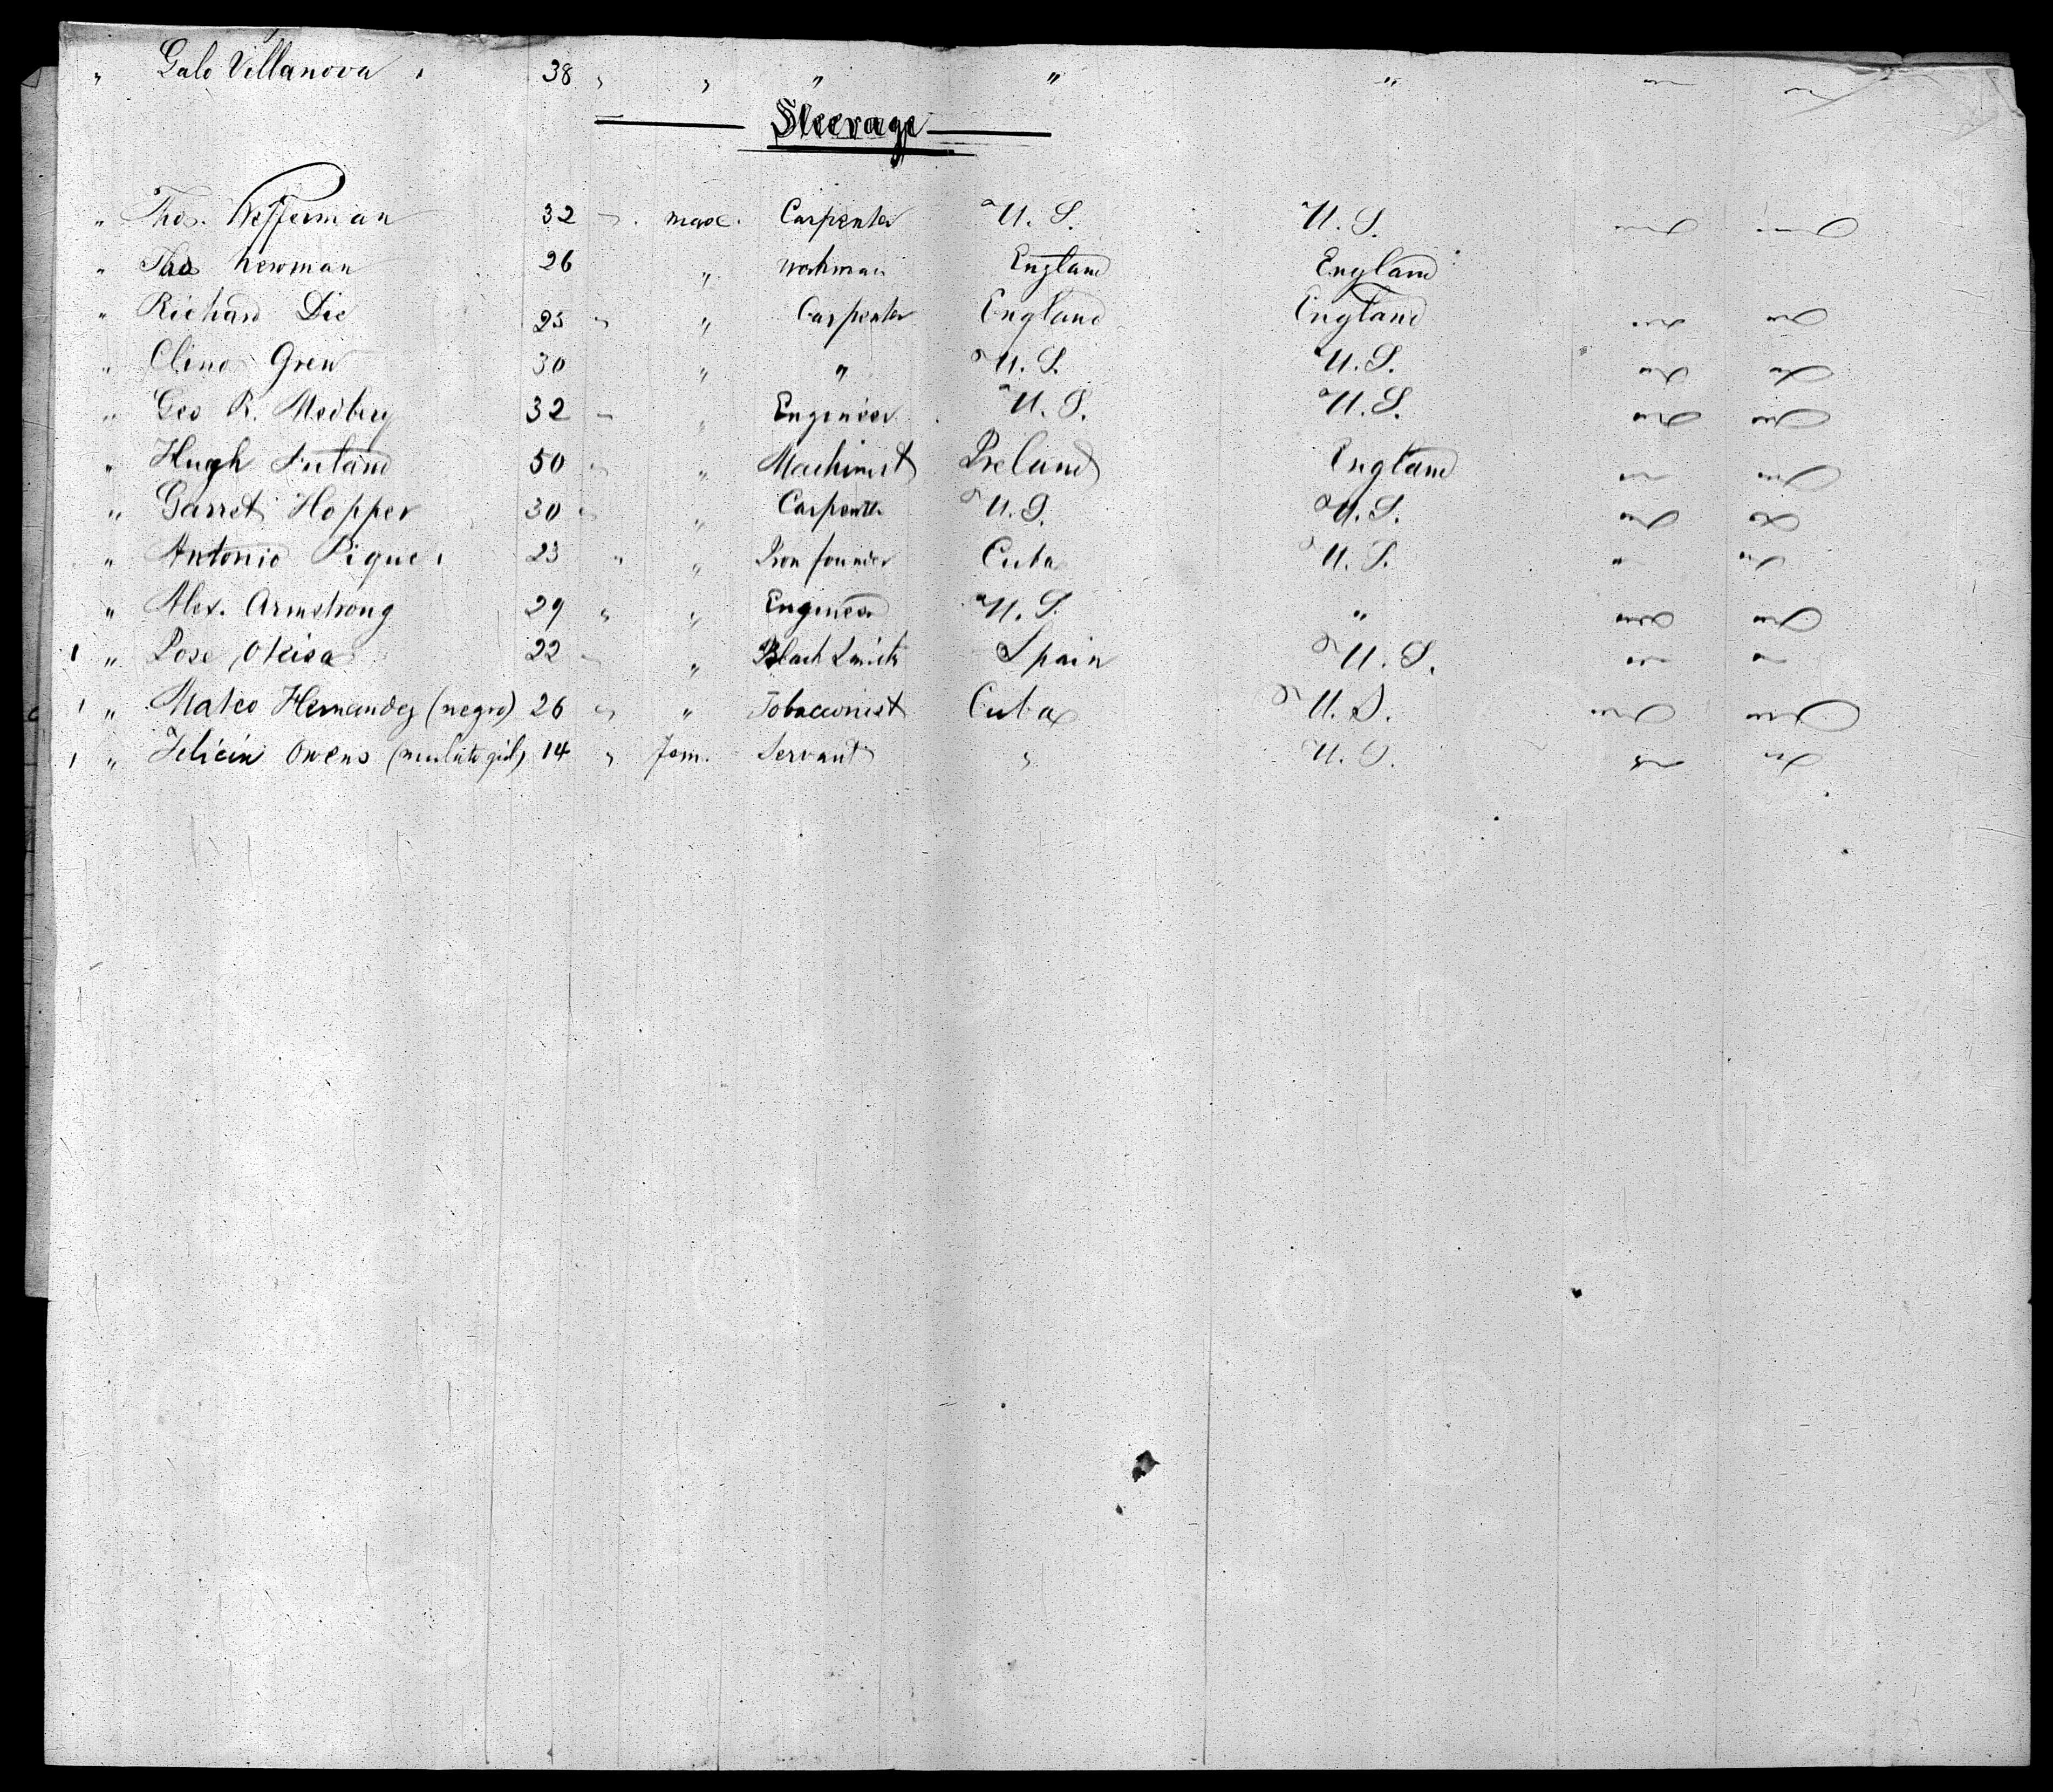 " Galo Villanova 38 " " " " " "
Steerage
" Thos. Heffernan 32 " male Carpenter U.S. U.S.
" Thos Newman 26 " workman England England
" Richard Die 25 " " Carpenter England England
" Clino Gren 30 " " U.S. U.S.
" Geo R. Medbury 32 " " Engineer U.S. U.S.
" Hugh 50 " " Machinist Ireland England
" Garret Hopper 30 " " Carpenter U.S. U.S.
" Antonio Pique 23 " " Iron founder Cuba U.S.
" Alex. Armstrong 29 " " Engineer U.S. "
" Jose 22 " " Black Smith Spain U.S.
" Mateo Hernandez (negro) 26 " " Tobacconist Cuba U.S.
" Felicia Owens (mulato girl) 14 " Fem. Servant " U.S.